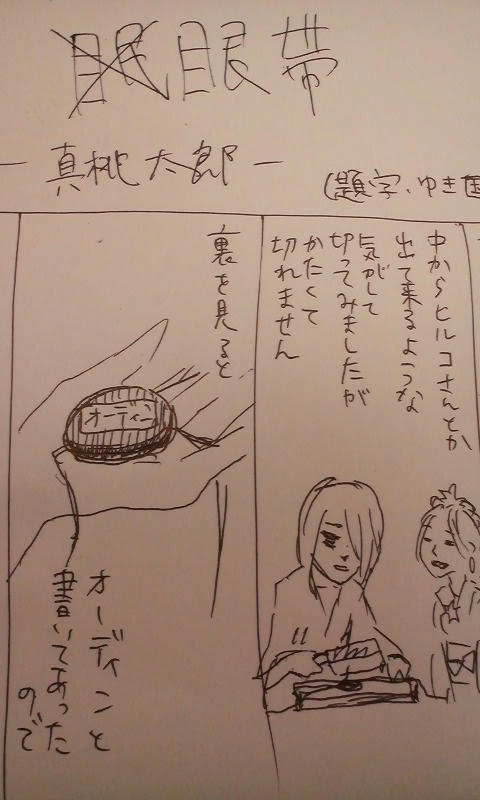 眠 眼帯
― 真桃太郎 ―
(題字、ゆき国
中からヒルコさんとか
出て来るような
気がして
切ってみましたが
かたくて
切れません
裏を見ると
オーディン
オーディンと
書いてあった
ので